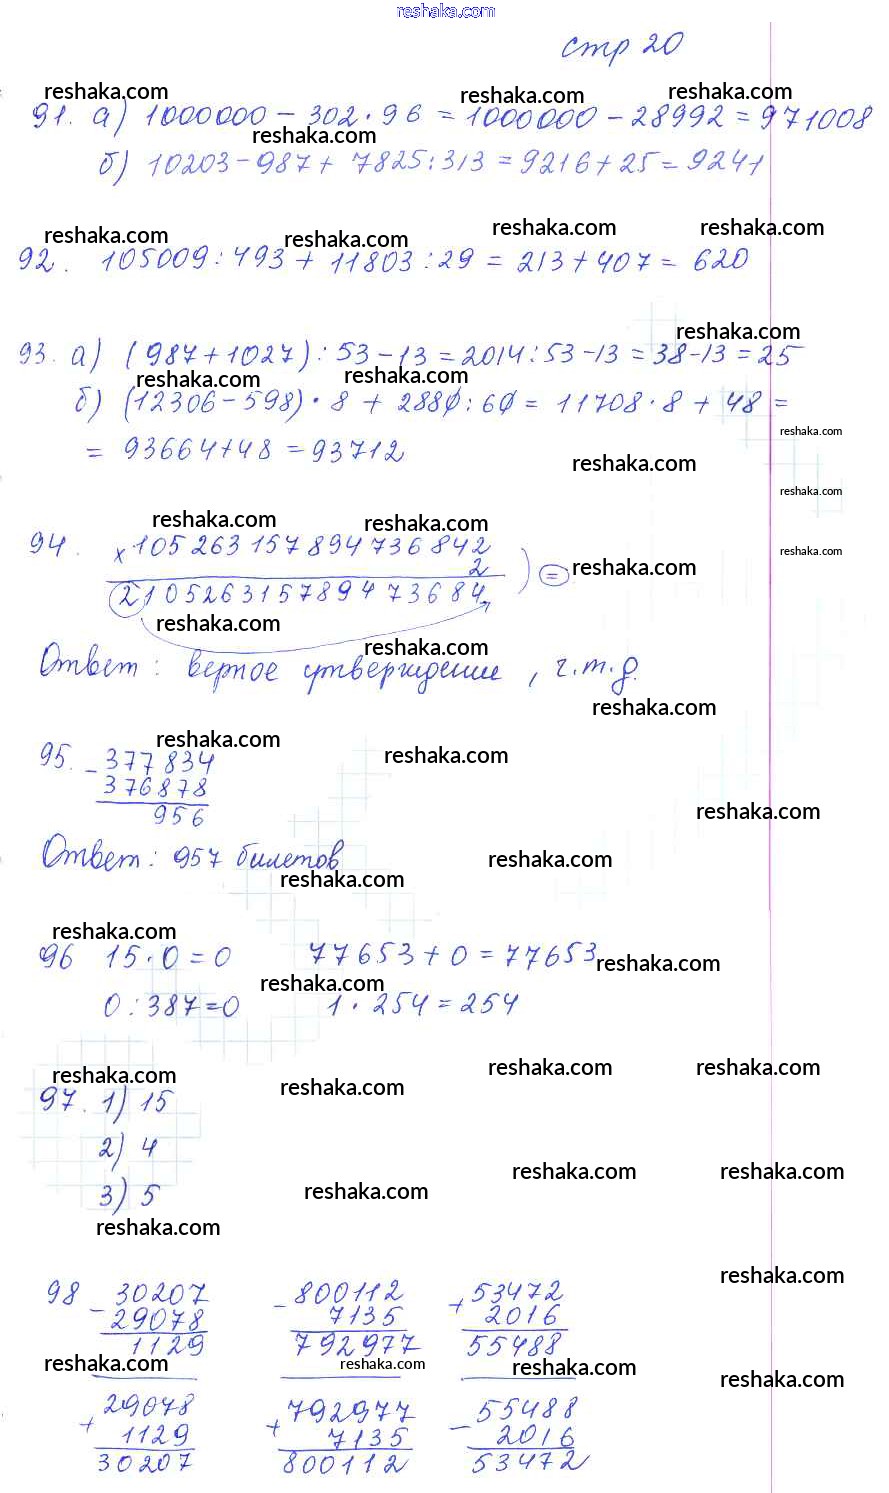 reshaka.com
стр 20
reshaka.com reshaka.com reshaka.com
91. а) 1000000 - 302 · 96 = 1000000 - 28992 = 971008
reshaka.com
б) 10203 - 987 + 7825 : 313 = 9216 + 25 = 9241
reshaka.com reshaka.com reshaka.com reshaka.com
92. 105009 : 493 + 11803 : 29 = 213 + 407 = 620
reshaka.com
93. а) (987 + 1027) : 53 - 13 = 2014 : 53 - 13 = 38 - 13 = 25
reshaka.com reshaka.com
б) (12306 - 598) · 8 + 2880 : 60 = 11708 · 8 + 48 =
reshaka.com
= 93664 + 48 = 93712
reshaka.com
reshaka.com
reshaka.com reshaka.com
94. x 105 263 157 894 736 842
reshaka.com
2 ) = reshaka.com
2 1 0 5 2 6 3 1 5 7 8 9 4 7 3 6 8 4
reshaka.com
reshaka.com
Ответ : верное утверждение , ч.т.д.
reshaka.com
reshaka.com reshaka.com
95. - 377 834
376 878
956
reshaka.com
Ответ : 957 билетов
reshaka.com reshaka.com
reshaka.com
96 15 · 0 = 0 77653 + 0 = 77653
reshaka.com
reshaka.com
0 : 387 = 0 1 · 254 = 254
reshaka.com reshaka.com reshaka.com reshaka.com
97. 1) 15
2) 4
reshaka.com reshaka.com
3) 5 reshaka.com
reshaka.com
reshaka.com
98 - 30207 - 800112 + 53472
29078 7135 2016
1129 792977 55488
reshaka.com reshaka.com reshaka.com reshaka.com
+ 29078 + 792977 - 55488
1129 7135 2016
30207 800112 53472